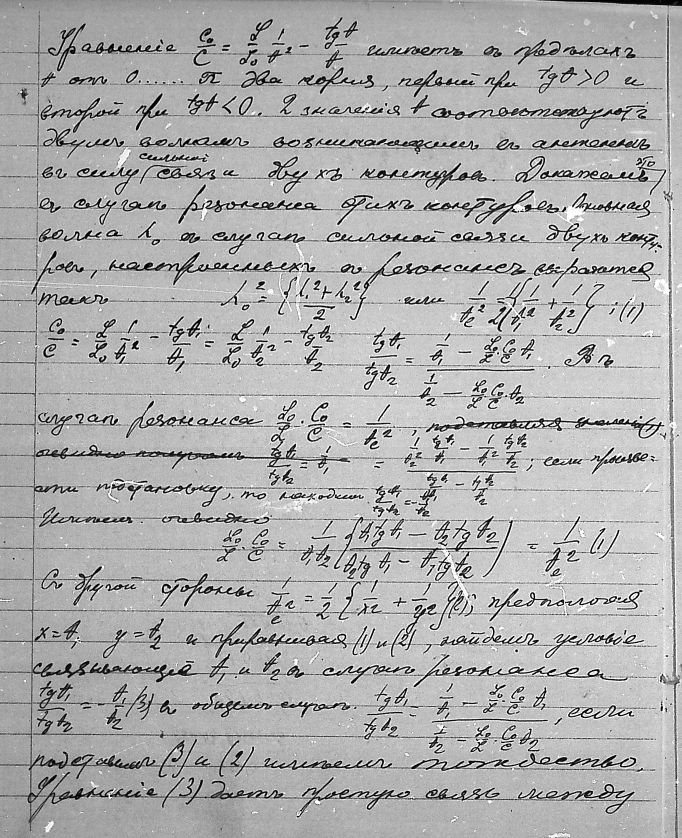 Уравненіе C₀/C = L/L₀ 1/t² − tg t/t имѣетъ въ предѣлахъ
t отъ 0...... π два корня, первый при tg t > 0 и
второй при tg t < 0. 2 значенія t соотвѣтствуютъ
двумъ волнамъ возникающимъ въ антеннѣ
въ силу (сильной связи двухъ контуровъ. Докажемъ это)
въ случаѣ резонанса этихъ контуровъ. Основная
волна λ₀ въ случаѣ сильной связи двухъ конту-
ровъ, настроенныхъ въ резонансъ выразится
такъ λ₀² = {(λ₁² + λ₂²)/2} или 1/tₑ² = 1/2 {1/t₁² + 1/t₂²}; (1)
C₀/C = L/L₀ 1/t₁² − tg t₁/t₁ = L/L₀ 1/t₂² − tg t₂/t₂ tg t₁/tg t₂ = (1/t₁ − L₀/L · C₀/C t₁)/(1/t₂ − L₀/L C₀/C · t₂). Въ
случаѣ резонанса L₀/L · C₀/C = 1/tₑ²; подставляя значеніе (1)
очевидно получимъ tg t₁/tg t₂ = 1/t₁ = (1/t₂² tg t₁/t₁ − 1/t₁² tg t₂/t₂)/(tg t₁/t₁ − tg t₂/t₂); если произве-
сти подстановку, то находимъ tg t₁/tg t₂ = − t₁/t₂
Имѣемъ очевидно
L₀/L · C₀/C = 1/t₁t₂ {(t₁ tg t₁ − t₂ tg t₂)/(t₂ tg t₁ − t₁ tg t₂)} = 1/tₑ² (1)
Съ другой стороны 1/tₑ² = 1/2 {1/x² + 1/y²} (2), предполагая
x = t₁ y = t₂ и приравнивая (1) и (2), найдемъ условіе
связывающее t₁ и t₂ въ случаѣ резонанса
tg t₁/tg t₂ = − t₁/t₂ (3) въ общемъ случаѣ. tg t₁/tg t₂ − (1/t₁ − L₀/L C₀/C t₁)/(1/t₂ − L₀/L C₀/C t₂), если
подставимъ (3) и (2) имѣемъ тождество.
Уравненіе (3) даетъ простую связь между